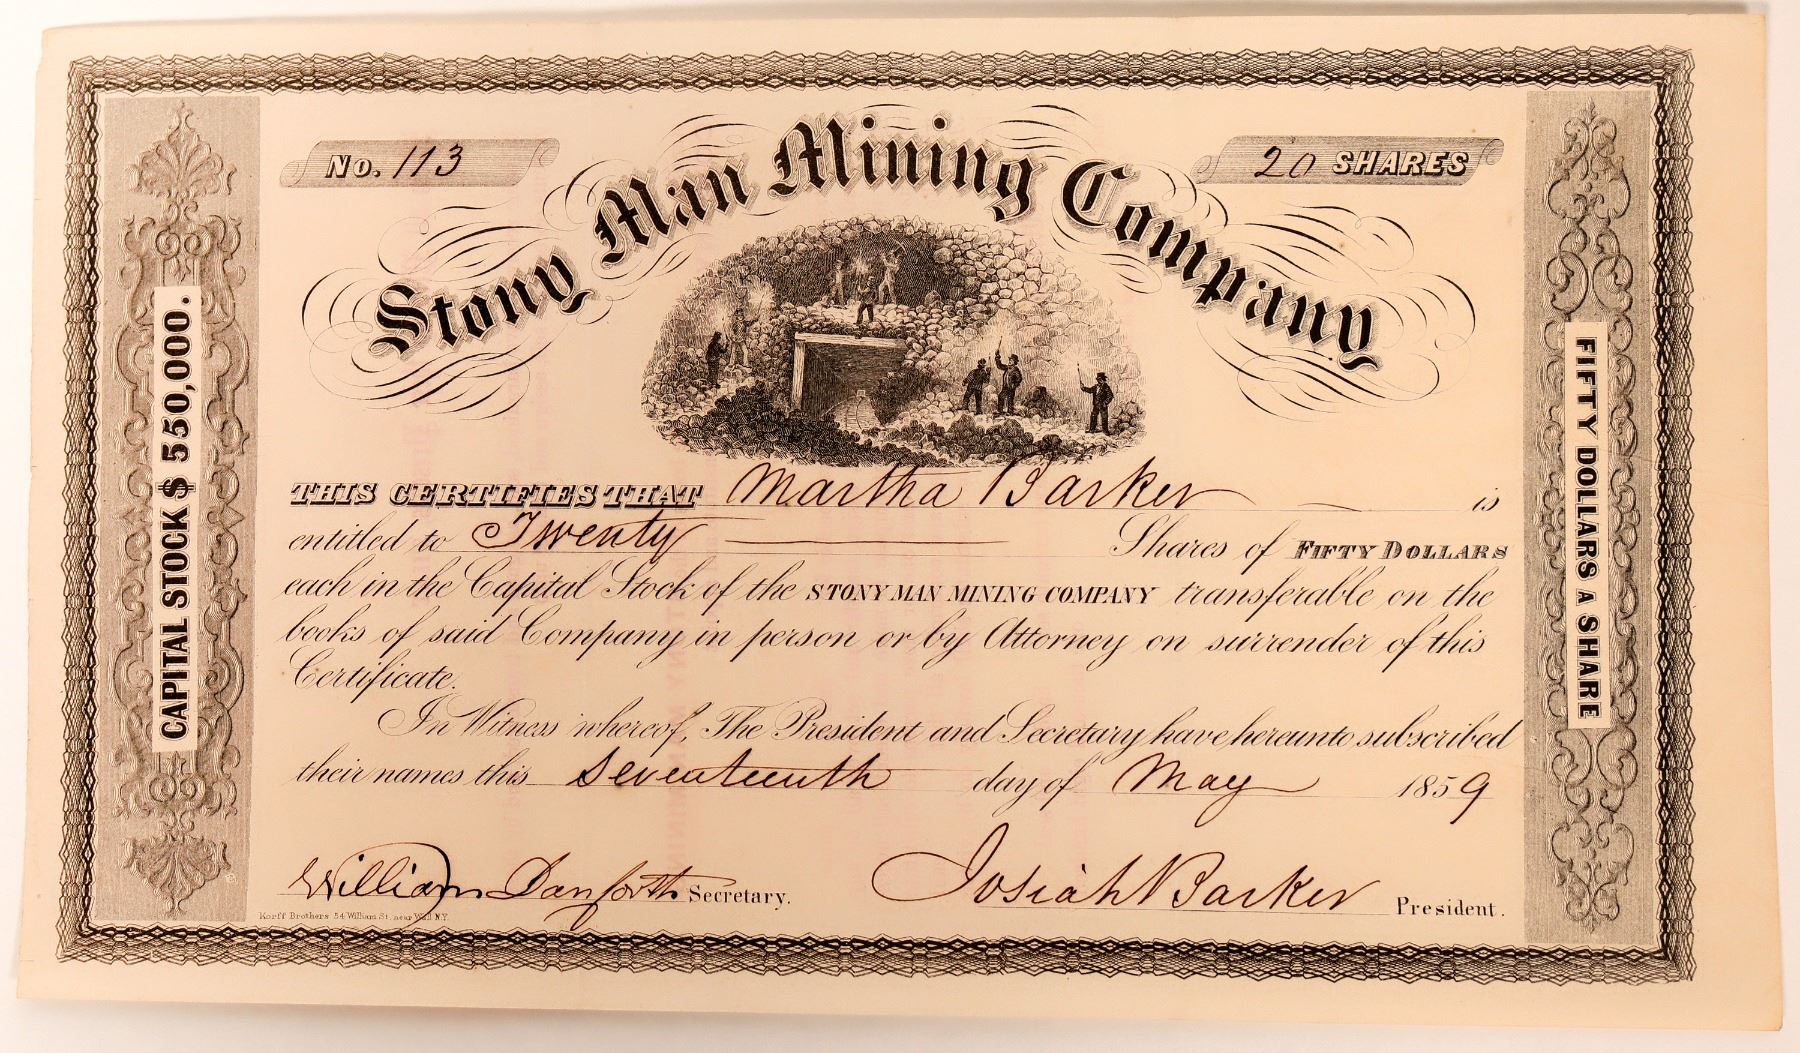 No. 113
20 SHARES
Stony Man Mining Company
CAPITAL STOCK $ 550,000.
FIFTY DOLLARS A SHARE
THIS CERTIFIES THAT Martha Barker is
entitled to Twenty Shares of FIFTY DOLLARS
each in the Capital Stock of the STONY MAN MINING COMPANY transferable on the
books of said Company in person or by Attorney on surrender of this
Certificate.
In Witness whereof, The President and Secretary have hereunto subscribed
their names this Seventeenth day of May 1859
William Danforth Secretary.
Josiah Barker President.
Korff Brothers 54 William St. near Wall N.Y.